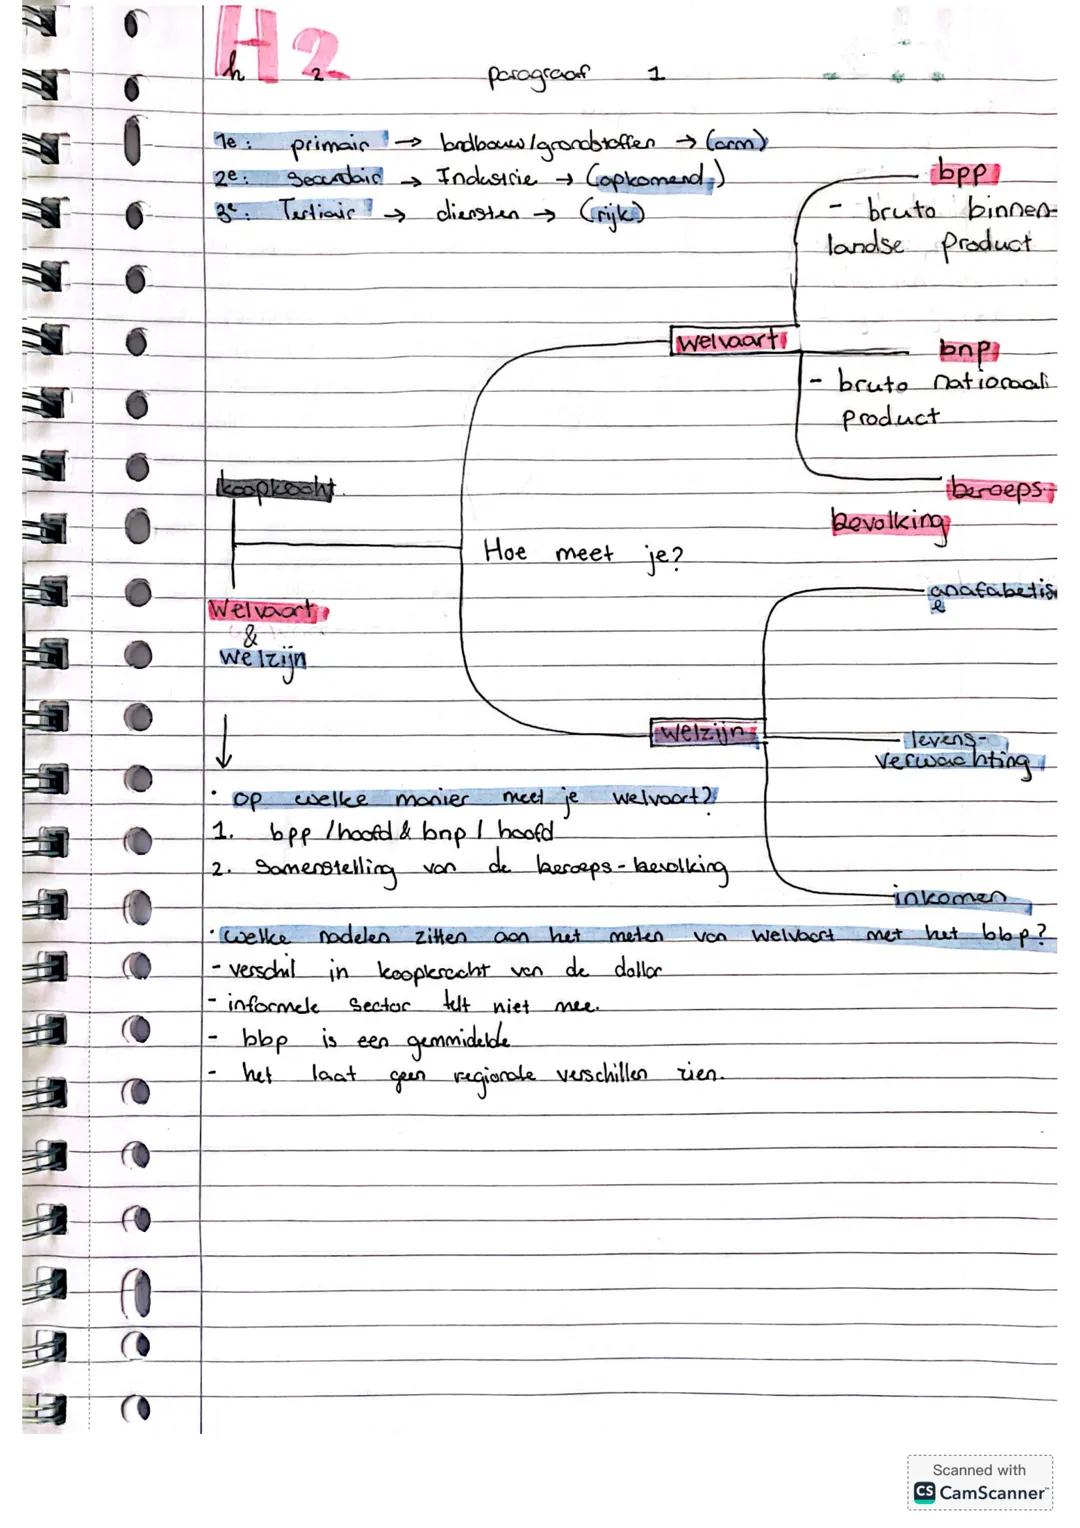 H2
h 2 paragraaf 1
1e: primair → landbouw/grondstoffen → (arm)
2e: Secundair → Industrie → (opkomend)
3e: Tertiair → diensten → (rijk)
bpp
- bruto binnen-
landse product
welvaart
bnp
- bruto nationaal
product
koopkracht
beroeps-
bevolking
Hoe meet je?
anafabetis
e
Welvaart
&
welzijn
welzijn
levens-
verwachting
• op welke manier meet je welvaart?
1. bpp /hoofd & bnp / hoofd
2. Samenstelling van de beroeps-bevolking
inkomen
• welke nadelen zitten aan het meten van welvaart met het bbp?
- verschil in koopkracht van de dollar
- informele sector telt niet mee.
- bbp is een gemmidelde
- het laat geen regionale verschillen zien.
Scanned with
CS CamScanner